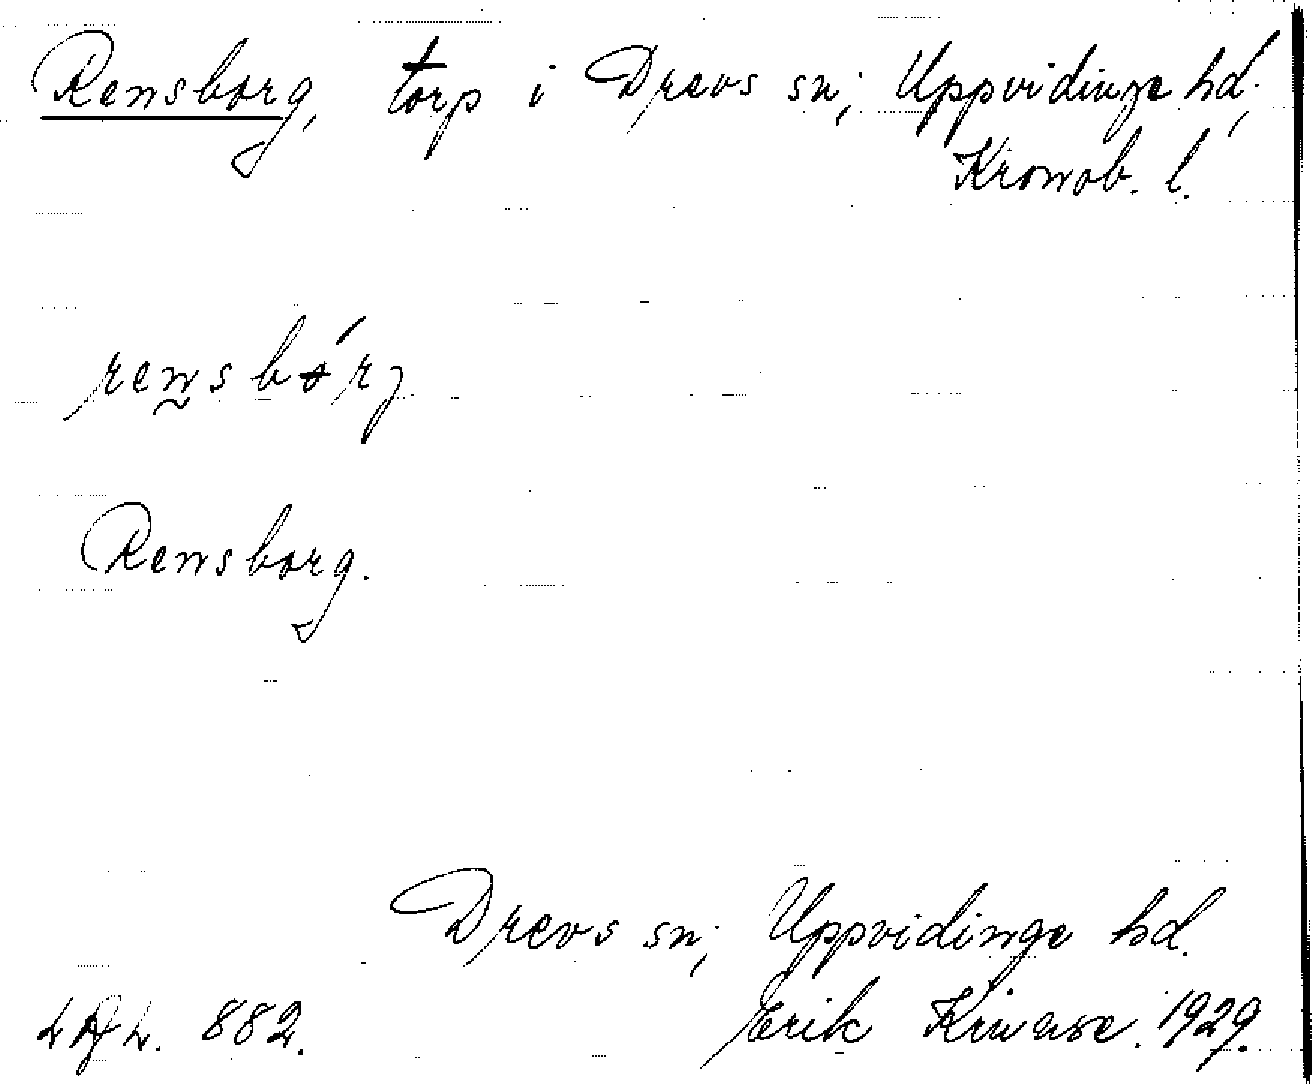 Rensborg, torp i Drevs sn; Uppvidinge hd;
Kronob. l.
rensbórg
Rensborg.
Drevs sn; Uppvidinge hd.
882. Erik 1929.